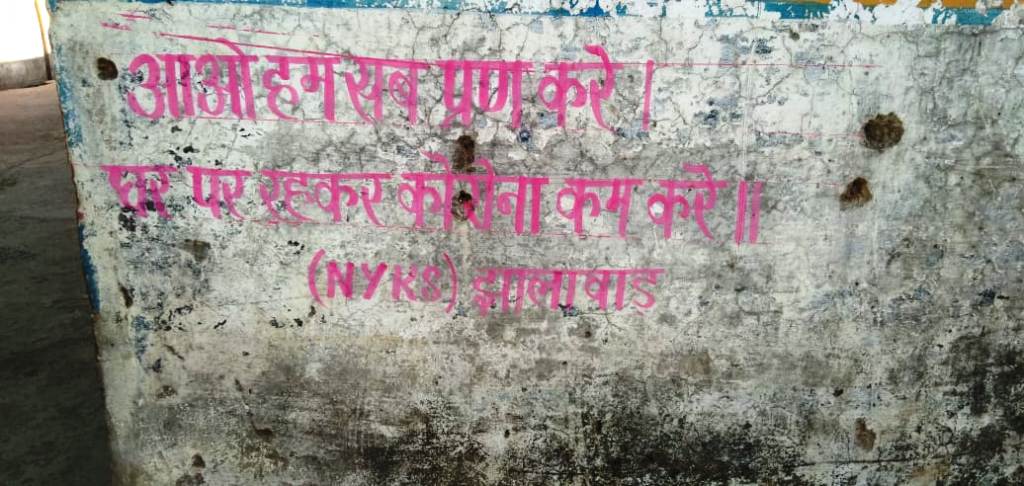 आओ हम सब प्रण करे।
घर पर रहकर कोरोना कम करे॥
(NYKS) झालावाड़